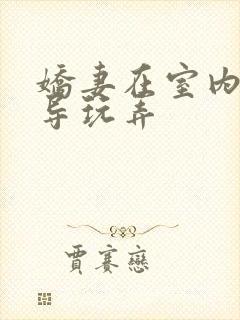 娇妻在室内
导玩弄
贾赛恋